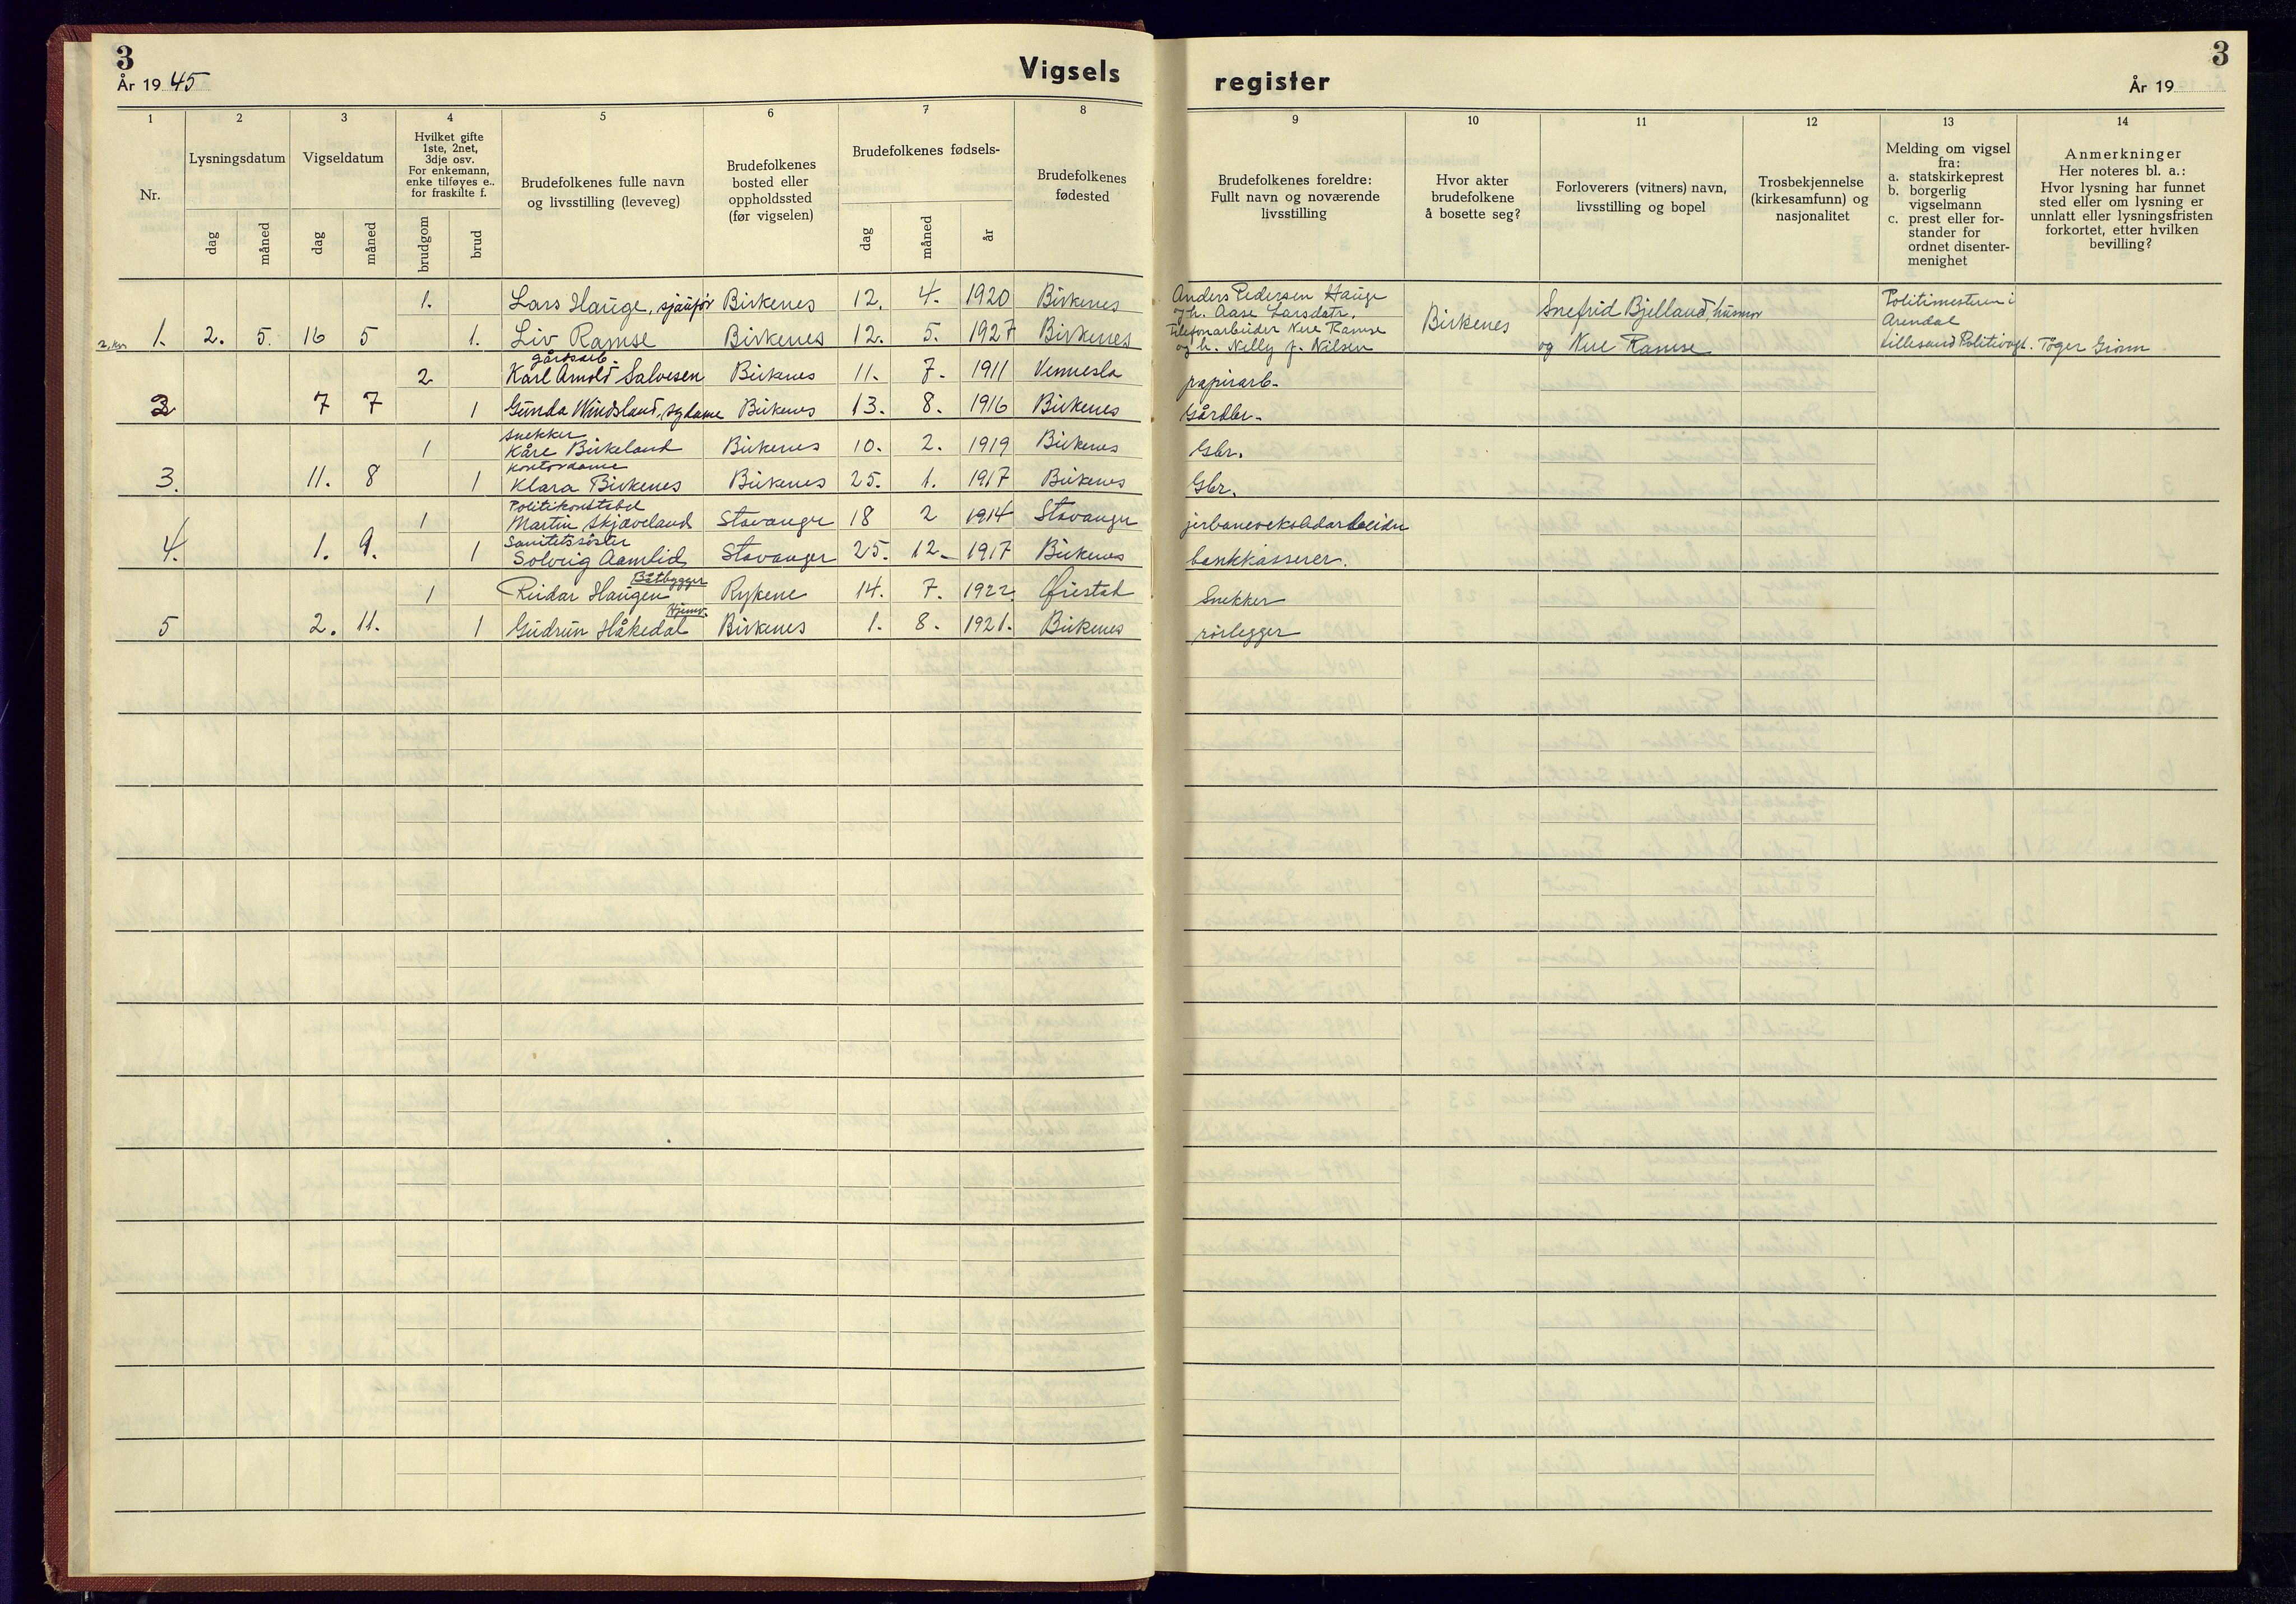 3
År 19 45
Vigsels
register
3
År 19
1 2 3 4 5 6 7 8 9 10 11 12 13 14
Nr.
Lysningsdatum
dag
måned
Vigseldatum
dag
måned
Hvilket gifte
1ste, 2net,
3dje osv.
For enkemann,
enke tilføyes e..
for fraskilte f.
brudgom
brud
Brudefolkenes fulle navn
og livsstilling (leveveg)
Brudefolkenes
bosted eller
oppholdssted
(før vigselen)
Brudefolkenes fødsels-
dag
måned
år
Brudefolkenes
fødested
Brudefolkenes foreldre:
Fullt navn og noværende
livsstilling
Hvor akter
brudefolkene
å bosette seg?
Forloverers (vitners) navn,
livsstilling og bopel
Trosbekjennelse
(kirkesamfunn) og
nasjonalitet
Melding om vigsel
fra:
a. statskirkeprest
b. borgerlig
vigselmann
c. prest eller for-
stander for
ordnet disenter-
menighet
Anmerkninger
Her noteres bl. a.:
Hvor lysning har funnet
sted eller om lysning er
unnlatt eller lysningsfristen
forkortet, etter hvilken
bevilling?
1. Lars Hauge, sjåufør Birkenes 12. 4. 1920 Birkenes
1. 2. 5. 16 5 1. Liv Ramse Birkenes 12. 5. 1927 Birkenes
Anders Pedersen Hauge
og h. Aase Larsdatr.
Telefonarbeider Nere Ramse
og h. Nelly f. Nilsen
Birkenes
Snefrid Bjelland, husmor
og Nere Ramse
Politimesteren i
Arendal
Lillesand Politivagt. Tøger Gronn
gårdsarb.
2 Karl Arnold Salvesen Birkenes 11. 7. 1911 Vennesla papirarb.
2 7 7 1 Gunda Windsland, sydame Birkenes 13. 8. 1916 Birkenes Gårdbr.
snekker
1 Kåre Birkeland Birkenes 10. 2. 1919 Birkenes Gbr.
kontordame
3. 11. 8 1 Klara Birkenes Birkenes 25. 1. 1917 Birkenes Gbr.
Politikonstabel
1 Martin Skjæveland Stavanger 18 2 1914 Stavanger jerbaneverkstedarbeider
Sanitetssøster
4. 1. 9. 1 Solveig Aamlid Stavanger 25. 12. 1917 Birkenes bankkasserer.
Båtbygger
1 Reidar Haugen Rykene 14. 7. 1922 Øiestad Snekker
Hjemv.
5 2. 11. 1 Gudrun Håkedal Birkenes 1. 8. 1921. Birkenes rørlegger